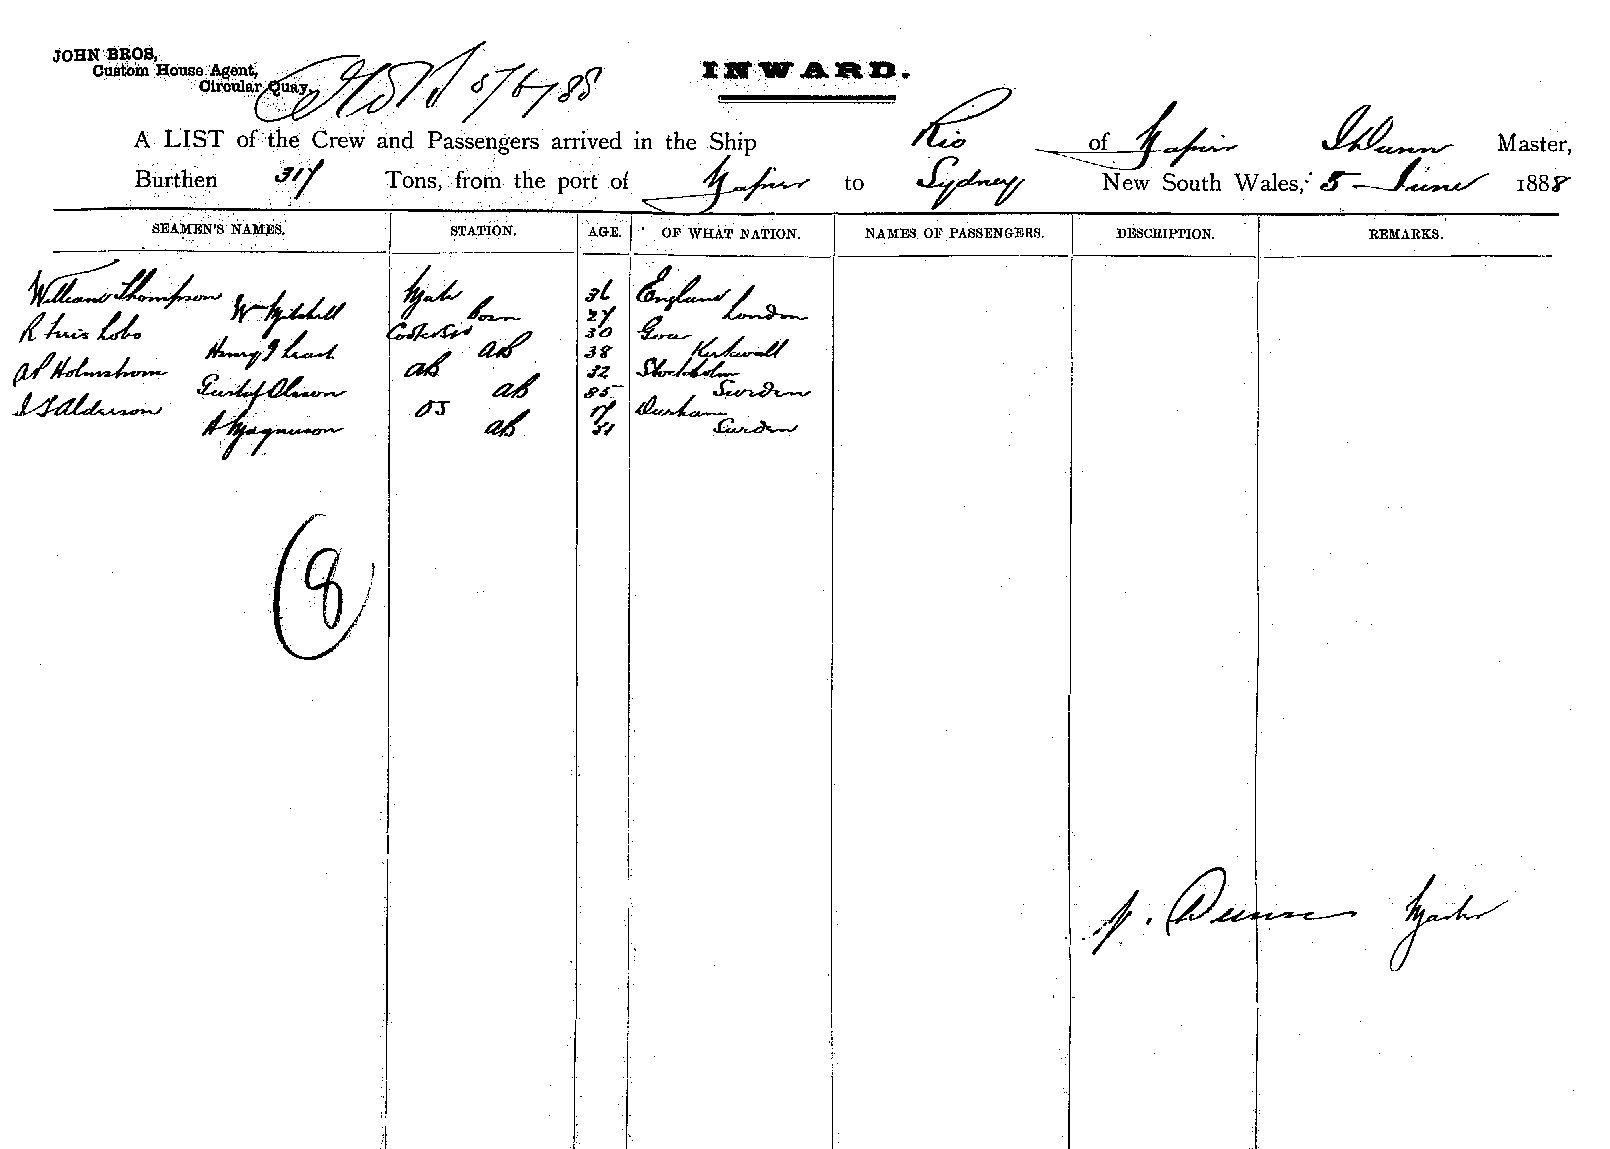 JOHN BROS,
Custom House Agent,
Circular Quay.
5/6/88
INWARD.
A LIST of the Crew and Passengers arrived in the Ship Rio of Napier Dunn Master,
Burthen 317 Tons, from the port of Napier to Sydney New South Wales, 5 June 1888
SEAMEN'S NAMES. STATION. AGE. OF WHAT NATION. NAMES OF PASSENGERS. DESCRIPTION. REMARKS.
William Thompson Mate 36 England
Wm Mitchell Bosn 27 London
R Luis Lobo Cook & Std 30 Goa
Henry AB 38 Kirkwall
AP Holmstrom AB 32 Stockholm
Gustaf Olsson AB Sweden
Alderson OS 17 Durham
A Magnuson AB Sweden
(8)
Dunn Master